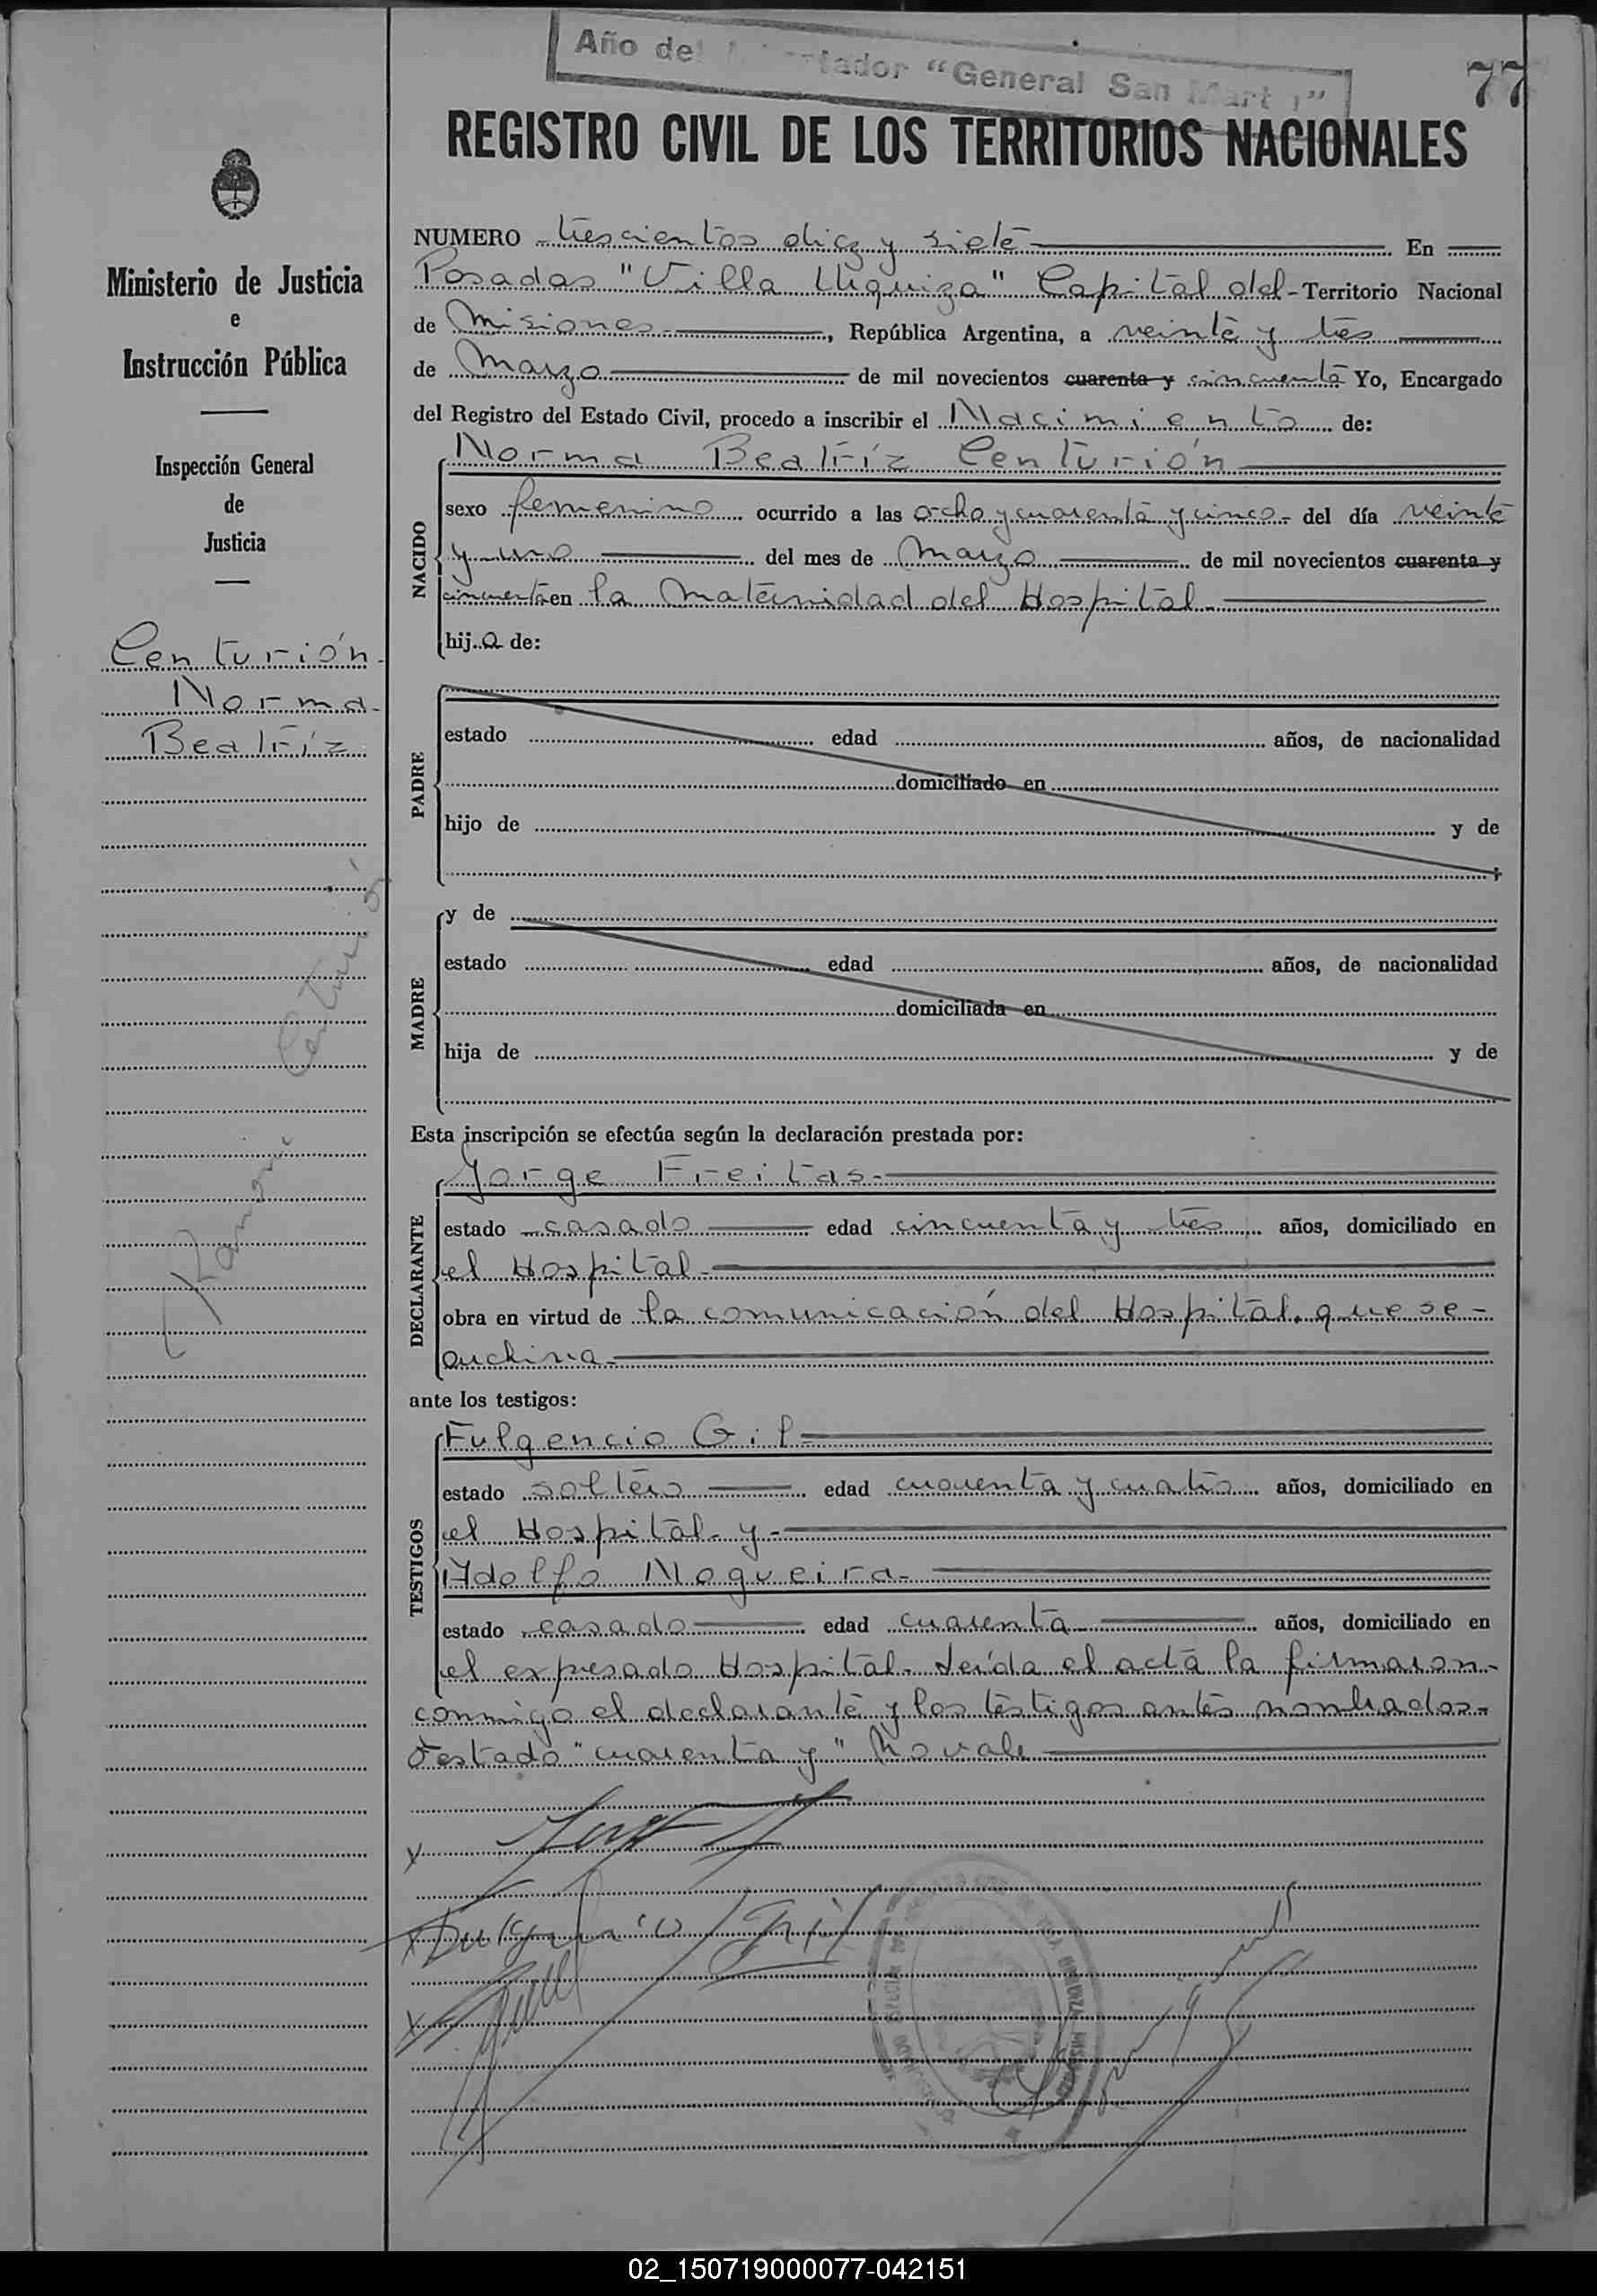 Año del Libertador "General San Martín"
77
REGISTRO CIVIL DE LOS TERRITORIOS NACIONALES
Ministerio de Justicia
e
Instrucción Pública
Inspección General
de
Justicia
Centurión
Norma
Beatríz
Centurión
(Ramona
NUMERO trescientos diez y siete En
Posadas "Villa Urquiza" Capital del Territorio Nacional
de Misiones, República Argentina, a veinte y tres
de Marzo de mil novecientos cuarenta y cincuenta Yo, Encargado
del Registro del Estado Civil, procedo a inscribir el Nacimiento de:
NACIDO
Norma Beatríz Centurión
sexo femenino ocurrido a las ocho y cuarenta y cinco del día veinte
y uno del mes de Marzo de mil novecientos cuarenta y
cincuenta en la Maternidad del Hospital
hija de:
PADRE
estado edad años, de nacionalidad
domiciliado en
hijo de y de
MADRE
y de
estado edad años, de nacionalidad
domiciliada en
hija de y de
Esta inscripción se efectúa según la declaración prestada por:
DECLARANTE
Jorge Freitas
estado casado edad cincuenta y tres años, domiciliado en
el Hospital
obra en virtud de la comunicación del Hospital, que se
archiva
ante los testigos:
TESTIGOS
Fulgencio Gil
estado soltero edad cuarenta y cuatro años, domiciliado en
el Hospital y
Adolfo Nogueira
estado casado edad cuarenta años, domiciliado en
el expresado Hospital. Leída el acta la firmaron
conmigo el declarante y los testigos antes nombrados
Testado "cuarenta y" No vale
x
x Fulgencio Gil
x
02_150719000077-042151